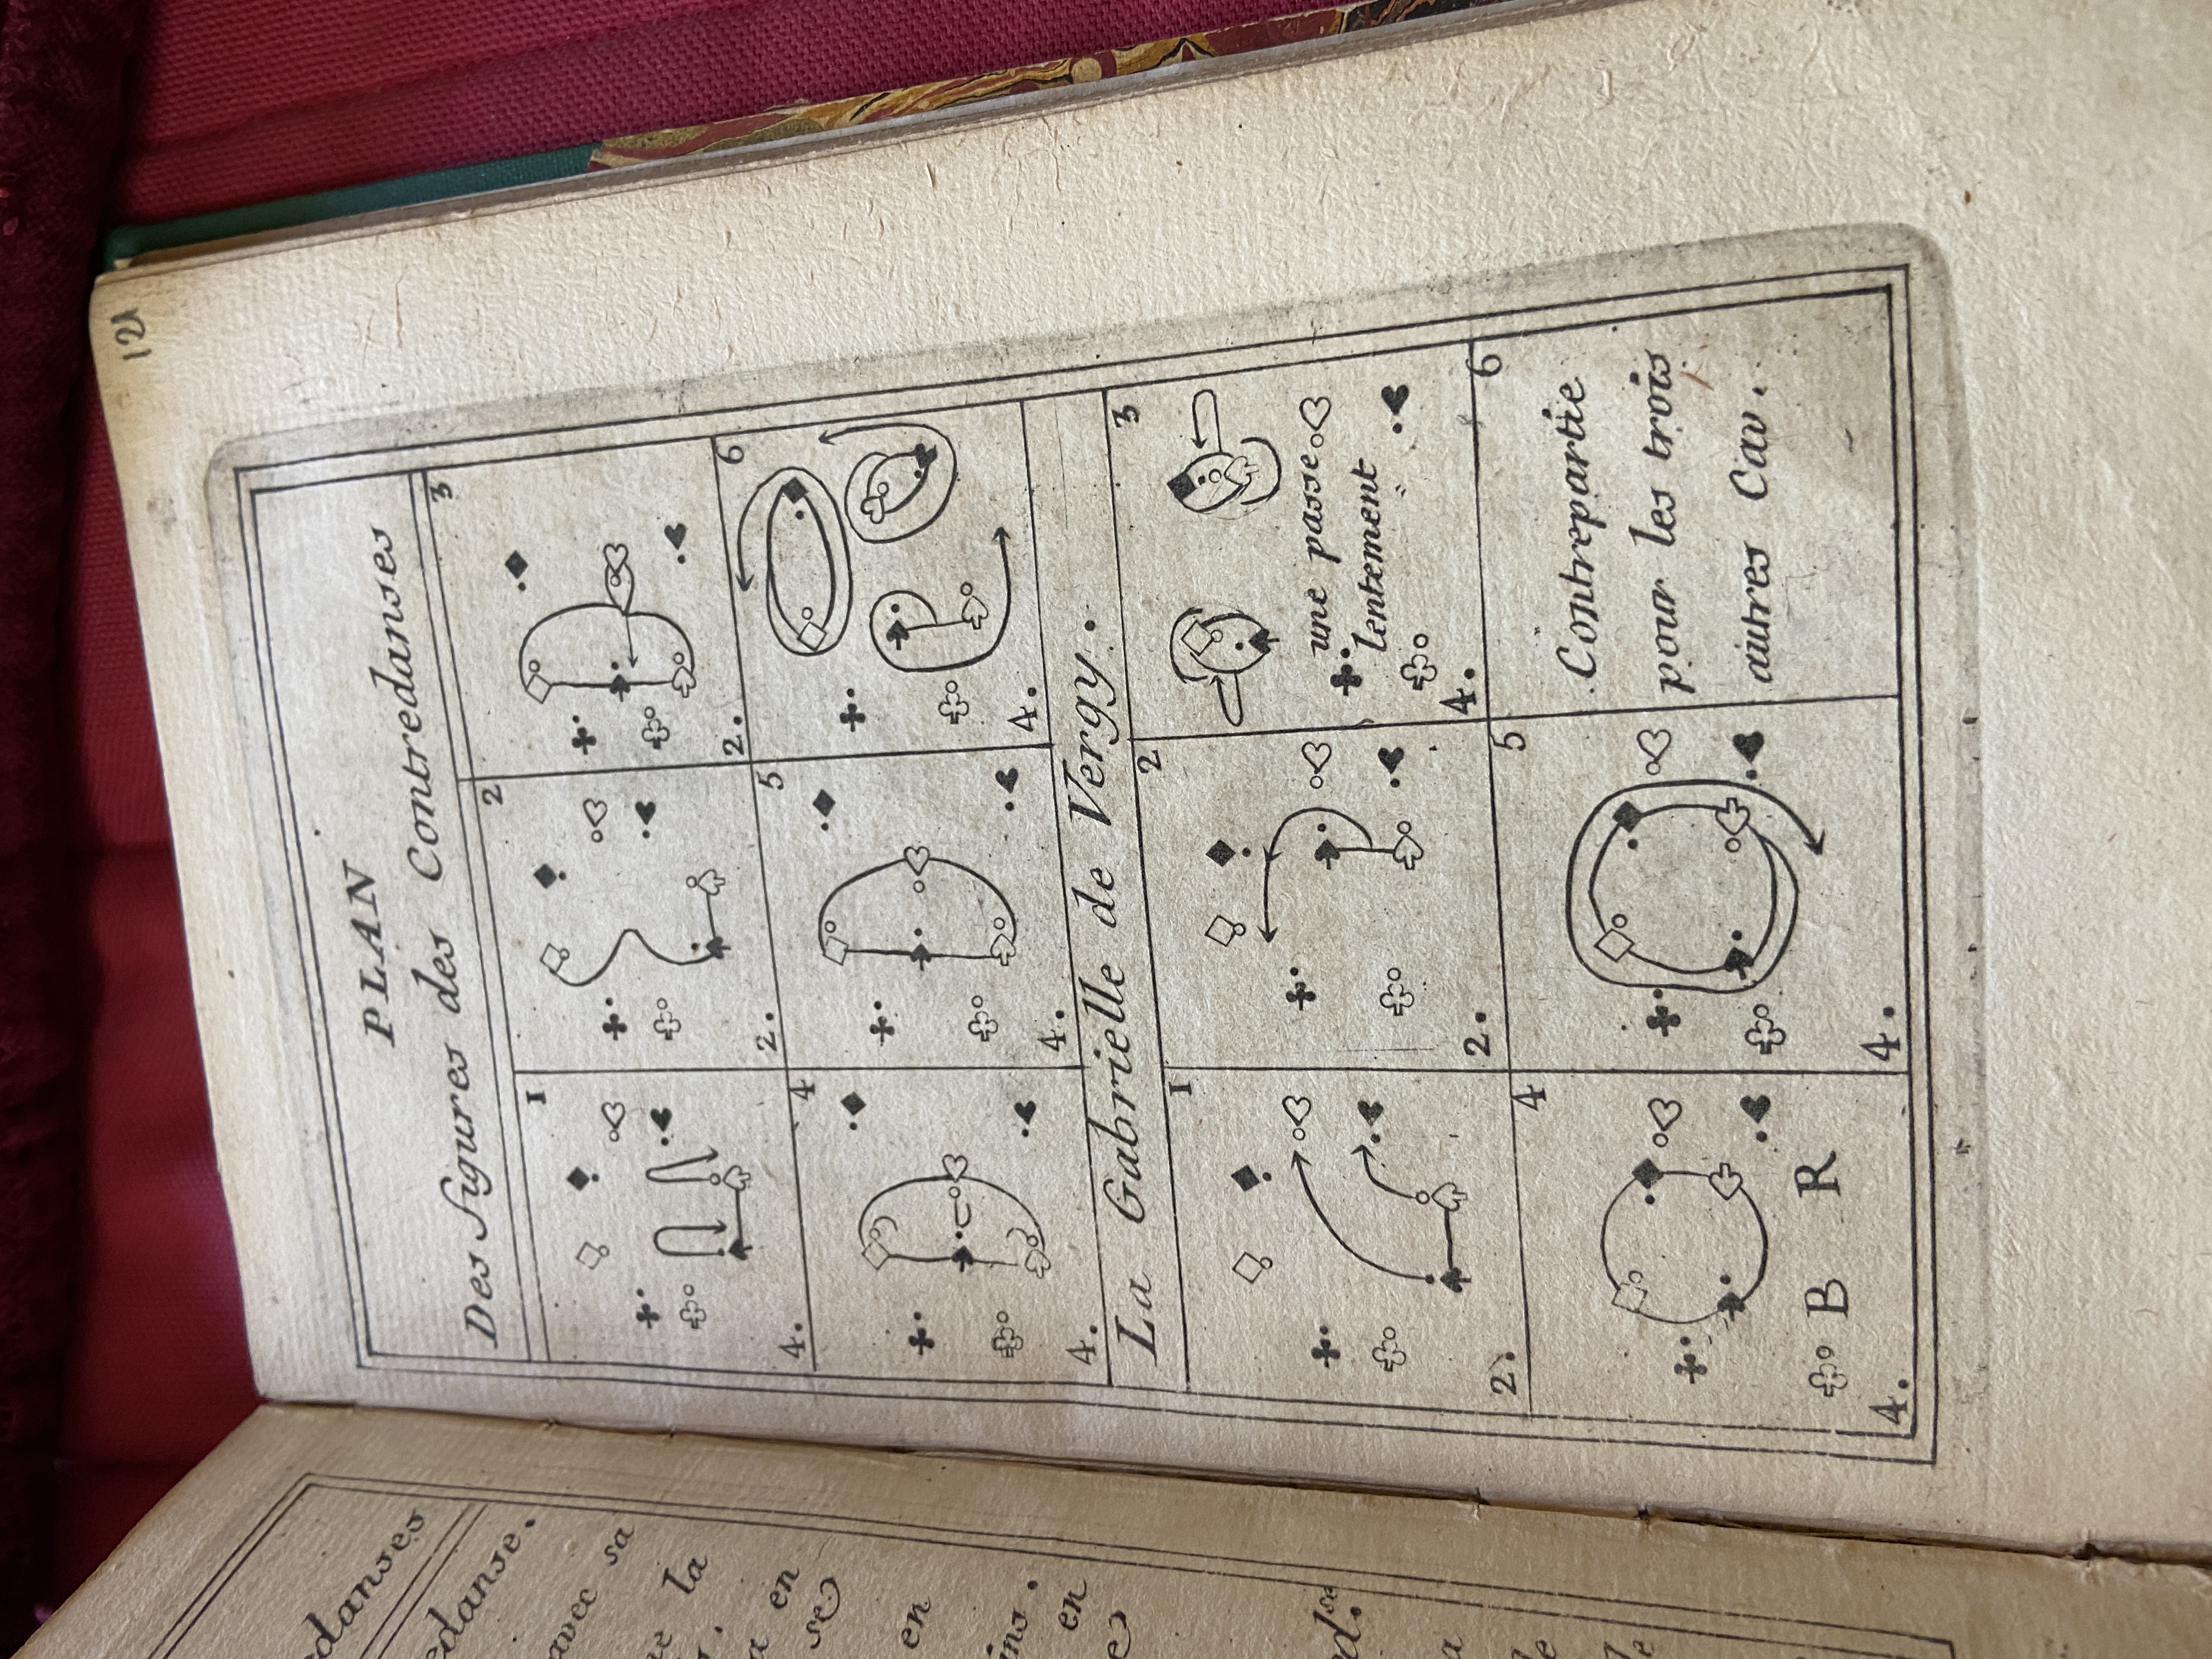 121
PLAN
Des figures des Contredanses
1
4.
2
2.
3
2.
4
4.
5
4.
6
4.
La Gabrielle de Vergy.
1
2.
2
2.
3
une passe
lentement
4.
4
B R
4.
5
4.
6
Contrepartie
pour les trois
autres Cav.
edanse.
avec sa
la
en
se
en
en